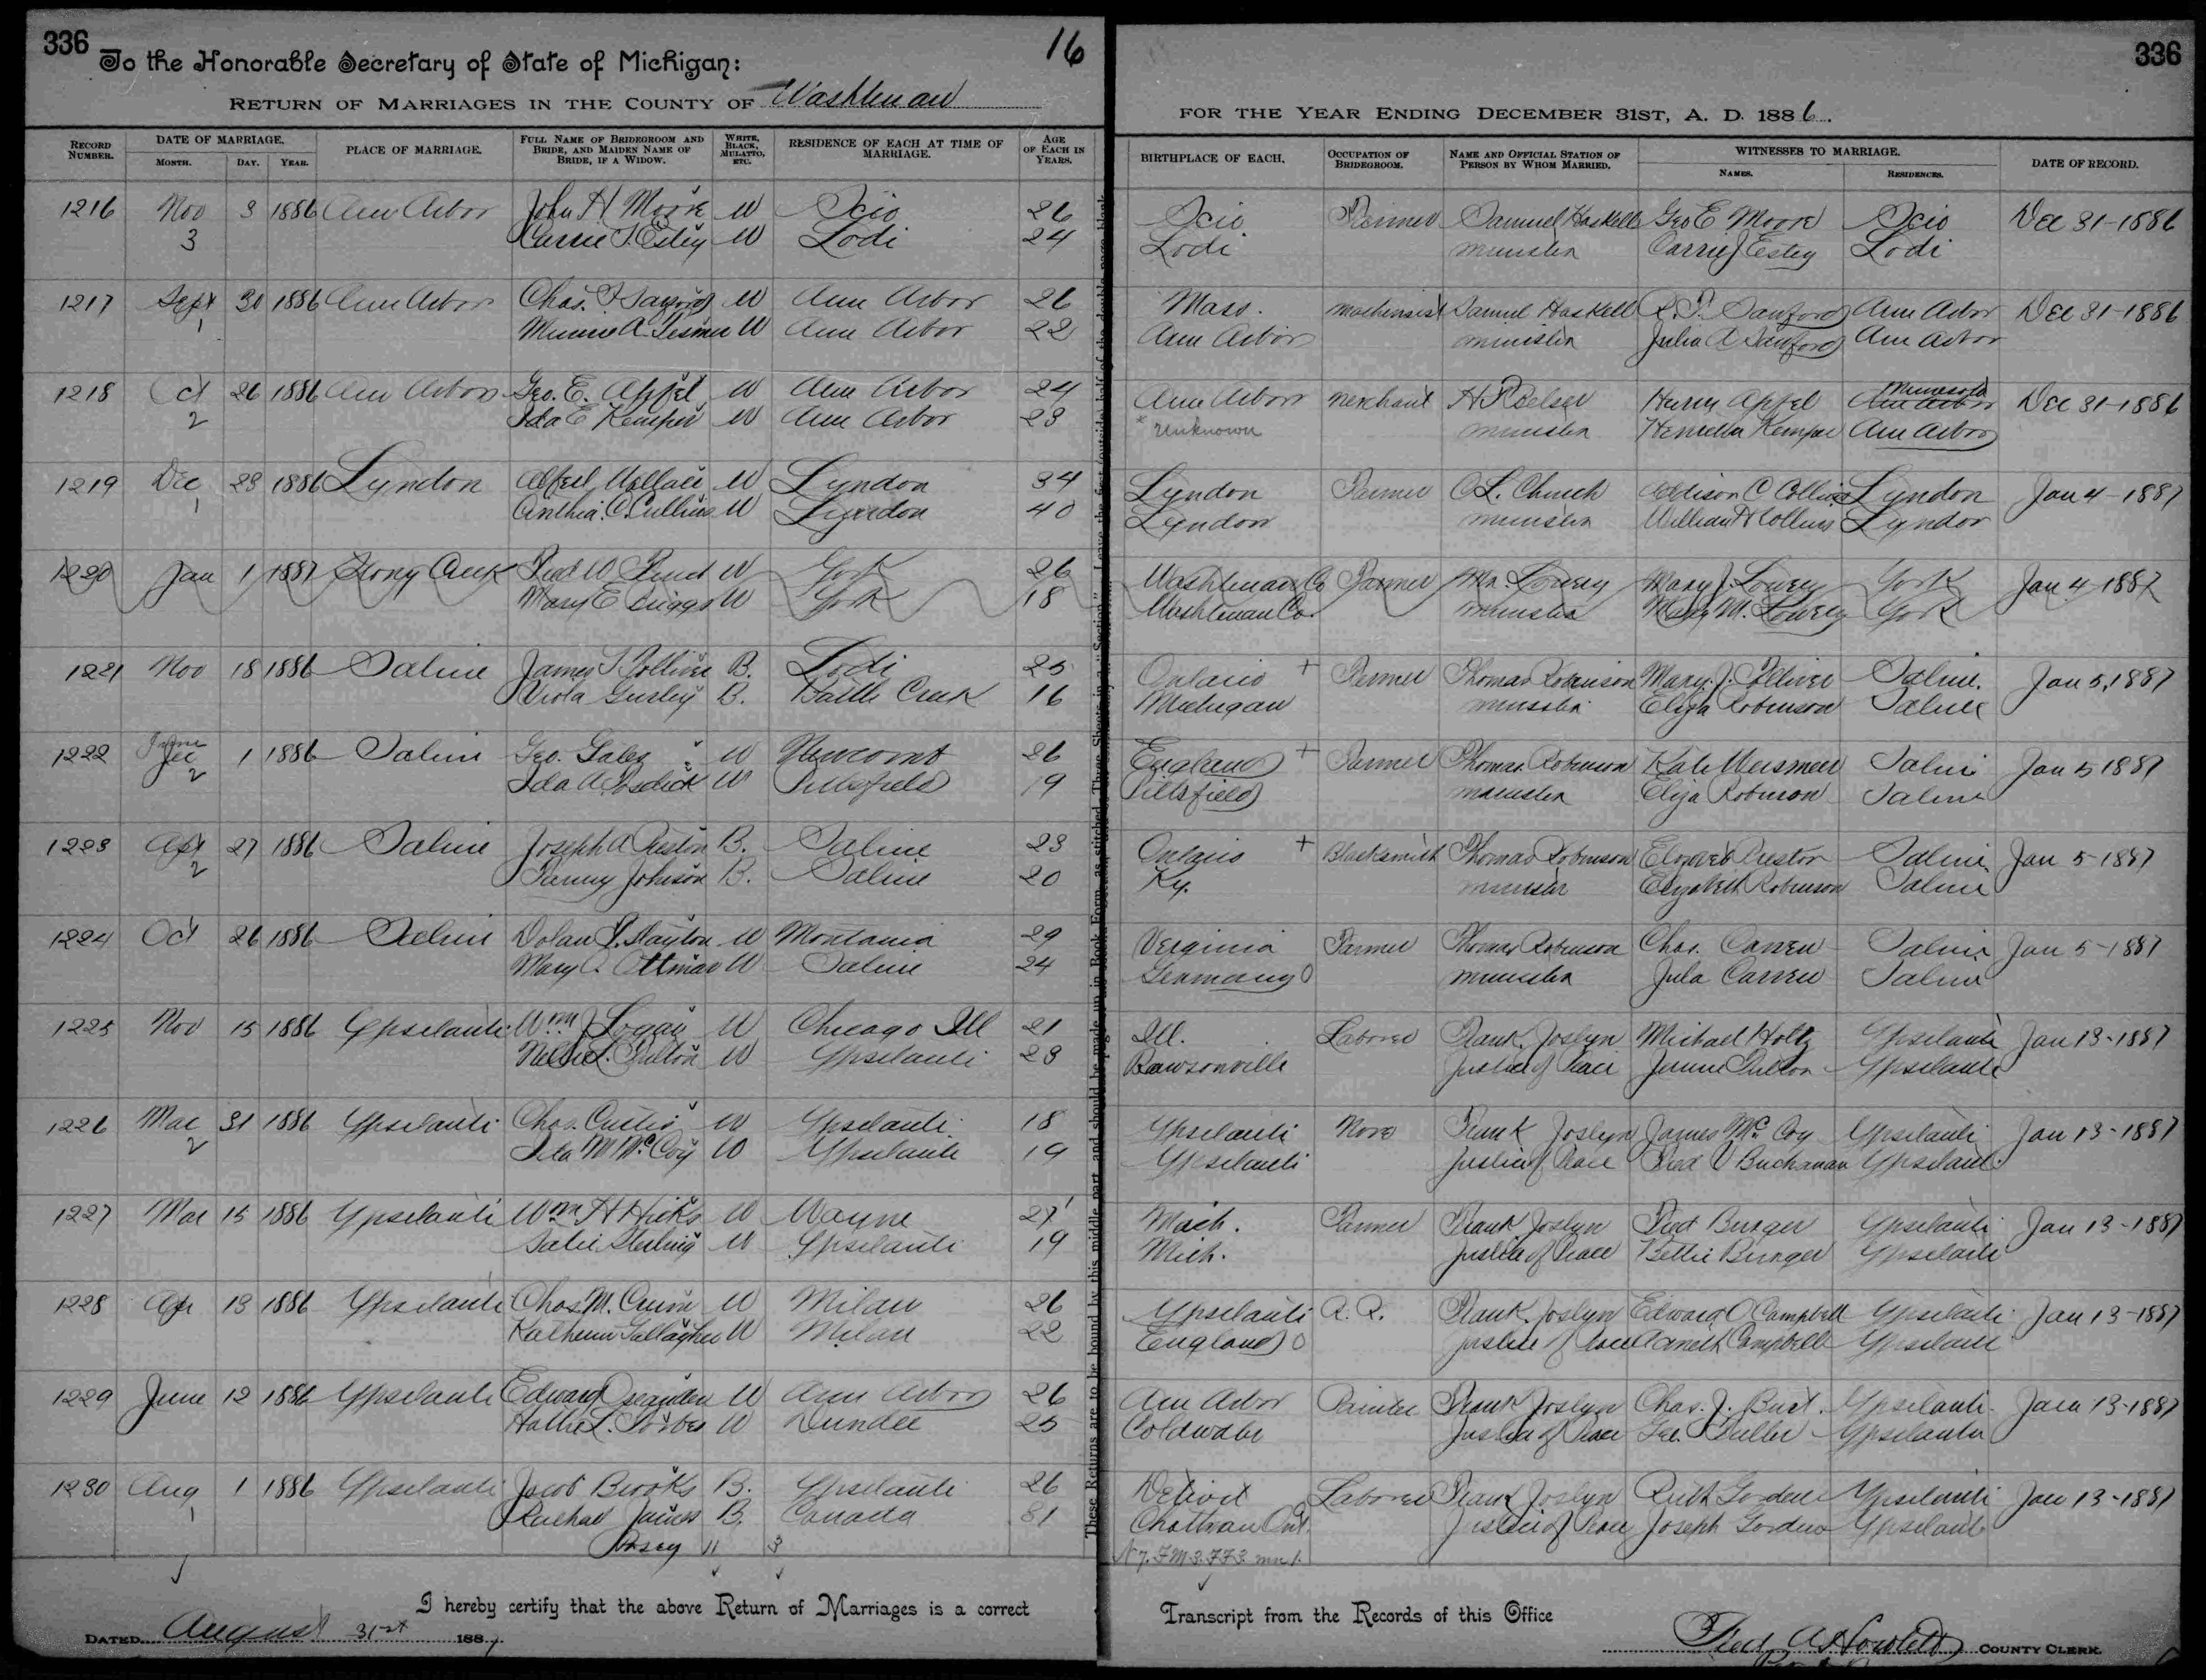 336
16
336
To the Honorable Secretary of State of Michigan:
RETURN OF MARRIAGES IN THE COUNTY OF Washtenaw
FOR THE YEAR ENDING DECEMBER 31ST, A. D. 1886.
RECORD NUMBER. DATE OF MARRIAGE. MONTH. DAY. YEAR. PLACE OF MARRIAGE. FULL NAME OF BRIDEGROOM AND BRIDE, AND MAIDEN NAME OF BRIDE, IF A WIDOW. WHITE, BLACK, MULATTO, ETC. RESIDENCE OF EACH AT TIME OF MARRIAGE. AGE OF EACH IN YEARS. BIRTHPLACE OF EACH. OCCUPATION OF BRIDEGROOM. NAME AND OFFICIAL STATION OF PERSON BY WHOM MARRIED. WITNESSES TO MARRIAGE. NAMES. RESIDENCES. DATE OF RECORD.
1216 Nov 3 1886 Ann Arbor John H Moore W Scio 26 Scio Farmer Samuel Haskell Geo E Moore Scio Dec 31-1886
3 Carrie J. Estey W Lodi 24 Lodi minister Carrie J Estey Lodi
1217 Sept 30 1886 Ann Arbor Chas. W Ann Arbor 26 Mass. machinist Samuel Haskell R. Sanford Ann Arbor Dec 31-1886
1 Minnie A. W Ann Arbor 22 Ann Arbor minister Julia A Sanford Ann Arbor
1218 Oct 26 1886 Ann Arbor Geo. E. Apfel W Ann Arbor 24 Ann Arbor merchant H Belser Henry Apfel Ann Arbor Minnesota Dec 31-1886
2 Ida E Kemper W Ann Arbor 23 * Unknown minister Henrietta Kemper Ann Arbor
1219 Dec 23 1886 Lyndon Alfred Wallace W Lyndon 34 Lyndon Farmer O L. Church Addison C Collins Lyndon Jan 4-1887
1 Anthia. C. Cullins W Lyndon 40 Lyndon minister William H Collins Lyndon
1220 Jan 1 1887 Stony Creek Fred W W York 26 Washtenaw Co Farmer Mr. Lowery Mary J. Lowery York Jan 4-1887
Mary E Briggs W York 18 Washtenaw Co. minister Mary M. Lowery York
1221 Nov 18 1886 Saline James B. Lodi 25 Ontario + Farmer Thomas Robinson Mary. J. Saline. Jan 5, 1887
Viola Gurley B. Battle Creek 16 Michigan minister Eliza Robinson Saline
1222 June Dec 1 1886 Saline Geo. Gales W Newcomb 26 England + Farmer Thomas Robinson Kate Saline Jan 5 1887
2 Ida A. Fosdick W Pittsfield 19 Pittsfield minister Eliza Robinson Saline
1223 Apr 27 1886 Saline Joseph A Preston B. Saline 23 Ontario + Blacksmith Thomas Robinson Preston Saline Jan 5-1887
2 Fanny Johnson B. Saline 20 Ky. minister Elizabeth Robinson Saline
1224 Oct 26 1886 Saline Dolan P. Slayton W Montania 29 Verginia Farmer Thomas Robinson Chas. Carren Saline Jan 5-1887
Mary C. Ottmar W Saline 24 Germany minister Jula Carren Saline
1225 Nov 15 1886 Ypsilanti Wm J Logan W Chicago Ill 21 Ill. Laborer Frank. Joslyn Michael Holtz Ypsilanti Jan 13-1887
Nellie L. Fulton W Ypsilanti 23 Rawsonville Justice of Peace Jennie Fulton Ypsilanti
1226 Mar 31 1886 Ypsilanti Chas. Curtis W Ypsilanti 18 Ypsilanti None Frank Joslyn James McCoy Ypsilanti Jan 13-1887
2 Ida M McCoy W Ypsilanti 19 Ypsilanti Justice of Peace Fred Buchanan Ypsilanti
1227 Mar 15 1886 Ypsilanti Wm H Hicks W Wayne 27 Mich. Farmer Frank Joslyn Fred Burger Ypsilanti Jan 13-1887
Satie Sterling W Ypsilanti 19 Mich. Justice of Peace Bettie Burger Ypsilanti
1228 Apr 13 1886 Ypsilanti Chas. M. W Milan 26 Ypsilanti R. R. Frank. Joslyn Edward C Campbell Ypsilanti Jan 13-1887
Gallagher W Milan 22 England Justice of Peace Campbell Ypsilanti
1229 June 12 1886 Ypsilanti Edward W Ann Arbor 26 Ann Arbor Painter Frank Joslyn Chas. J. Ypsilanti Jan 13-1887
Hattie L. Forbes W Dundee 25 Coldwater Justice of Peace Geo. Fuller Ypsilanti
1230 Aug 1 1886 Ypsilanti Jacob Brooks B. Ypsilanti 26 Detroit Laborer Frank Joslyn Ruth Ypsilanti Jan 13-1887
1 Rachael James B. Canada 31 Chatham Ont. Justice of Peace Joseph Ypsilanti
These Returns are to be bound by this middle part, and should be made up in Book Form, as stitched, Three Sheets in a "Section." Leave the first (outside) half of the double page blank.
I hereby certify that the above Return of Marriages is a correct Transcript from the Records of this Office
DATED August 31st 1887 Fred A Howlett COUNTY CLERK.